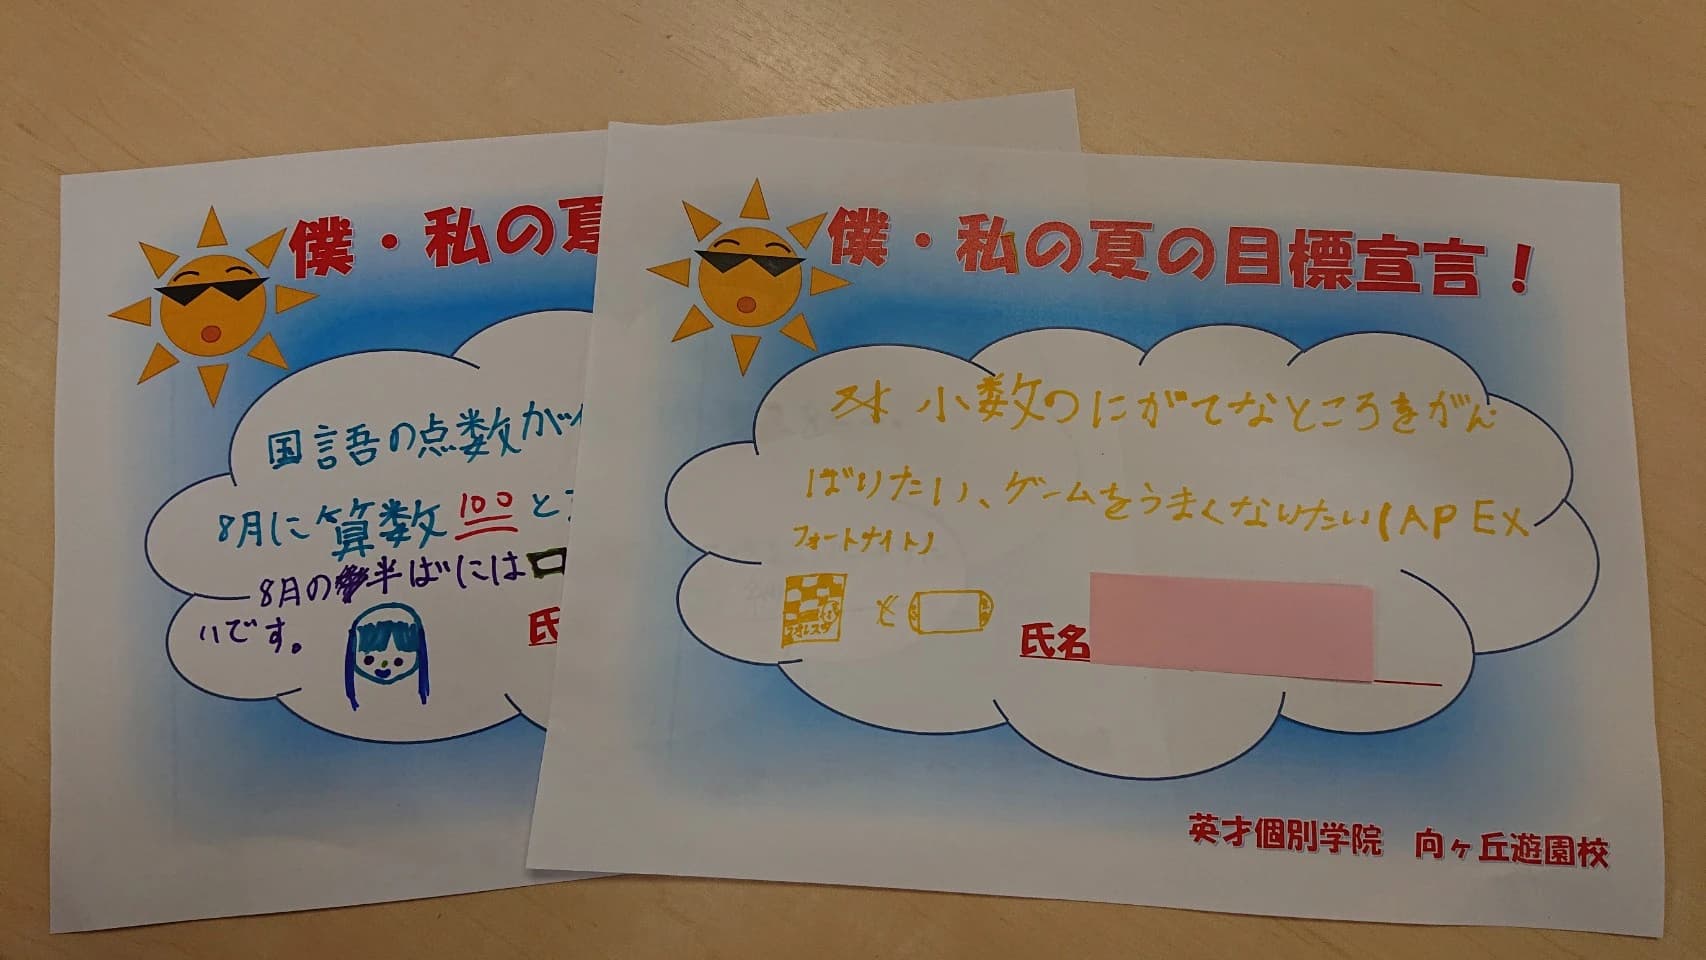 僕・私の夏
国語の点数が
8月に算数100と
8月の半ばには
いです。
氏
僕・私の夏の目標宣言！
小数のにがてなところをがん
ばりたい、ゲームをうまくなりたい(APEX
フォートナイト)
と
氏名
英才個別学院 向ヶ丘遊園校